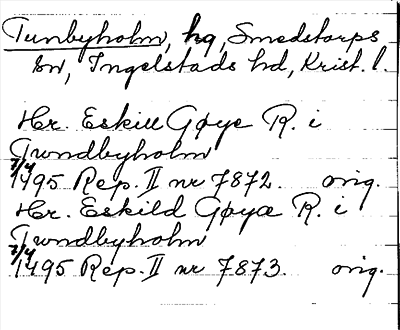 Tunbyholm, hg, Smedstorps
sn, Ingelstads hd, Krist. l.
Hr. Eskill Gøye R. i
Tundbyholm
7/4
1495 Rep. II nr 7872. orig.
Hr. Eskild Gøya R. i
Tundbyholm
7/4
1495 Rep. II nr 7873. orig.